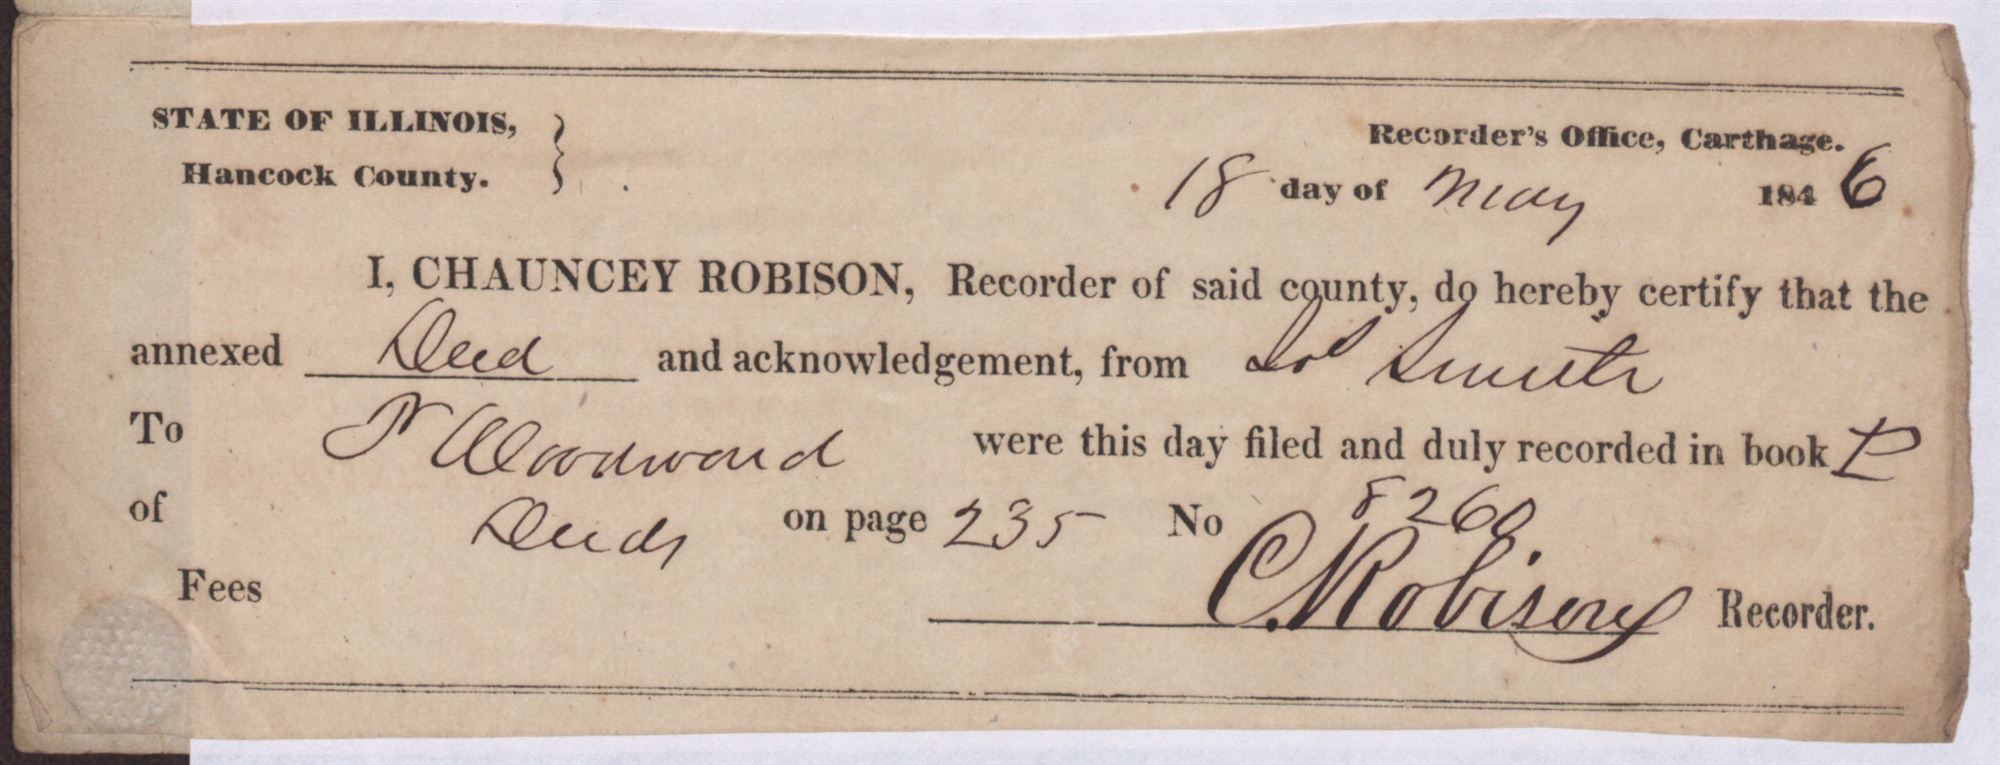 STATE OF ILLINOIS,
Hancock County.
Recorder's Office, Carthage.
18 day of May 1846
I, CHAUNCEY ROBISON, Recorder of said county, do hereby certify that the
annexed Deed and acknowledgement, from Jos Smith
To Woodword were this day filed and duly recorded in book P
of Deeds on page 235 No 8260
Fees C. Robison Recorder.